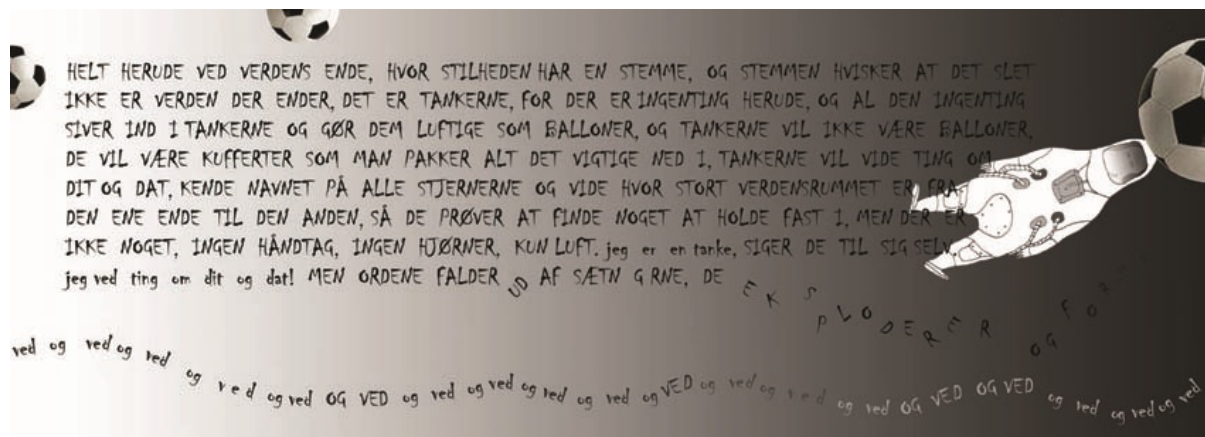 HELT HERUDE VED VERDENS ENDE, HVOR STILHEDEN HAR EN STEMME, OG STEMMEN HVISKER AT DET SLET
IKKE ER VERDEN DER ENDER, DET ER TANKERNE, FOR DER ER INGENTING HERUDE, OG AL DEN INGENTING
SIVER IND I TANKERNE OG GØR DEM LUFTIGE SOM BALLONER, OG TANKERNE VIL IKKE VÆRE BALLONER,
DE VIL VÆRE KUFFERTER SOM MAN PAKKER ALT DET VIGTIGE NED I, TANKERNE VIL VIDE TING OM
DIT OG DAT, KENDE NAVNET PÅ ALLE STJERNERNE OG VIDE HVOR STORT VERDENSRUMMET ER FRA
DEN ENE ENDE TIL DEN ANDEN, SÅ DE PRØVER AT FINDE NOGET AT HOLDE FAST I, MEN DER ER
IKKE NOGET, INGEN HÅNDTAG, INGEN HJØRNER, KUN LUFT. jeg er en tanke, SIGER DE TIL SIG SELV,
jeg ved ting om dit og dat! MEN ORDENE FALDER UD AF SÆTN G RNE, DE EKSPLODERER OG
ved og ved og ved og ved og ved OG VED og ved og ved og ved og ved og VED og ved og ved og ved OG VED OG VED og ved og ved og ved